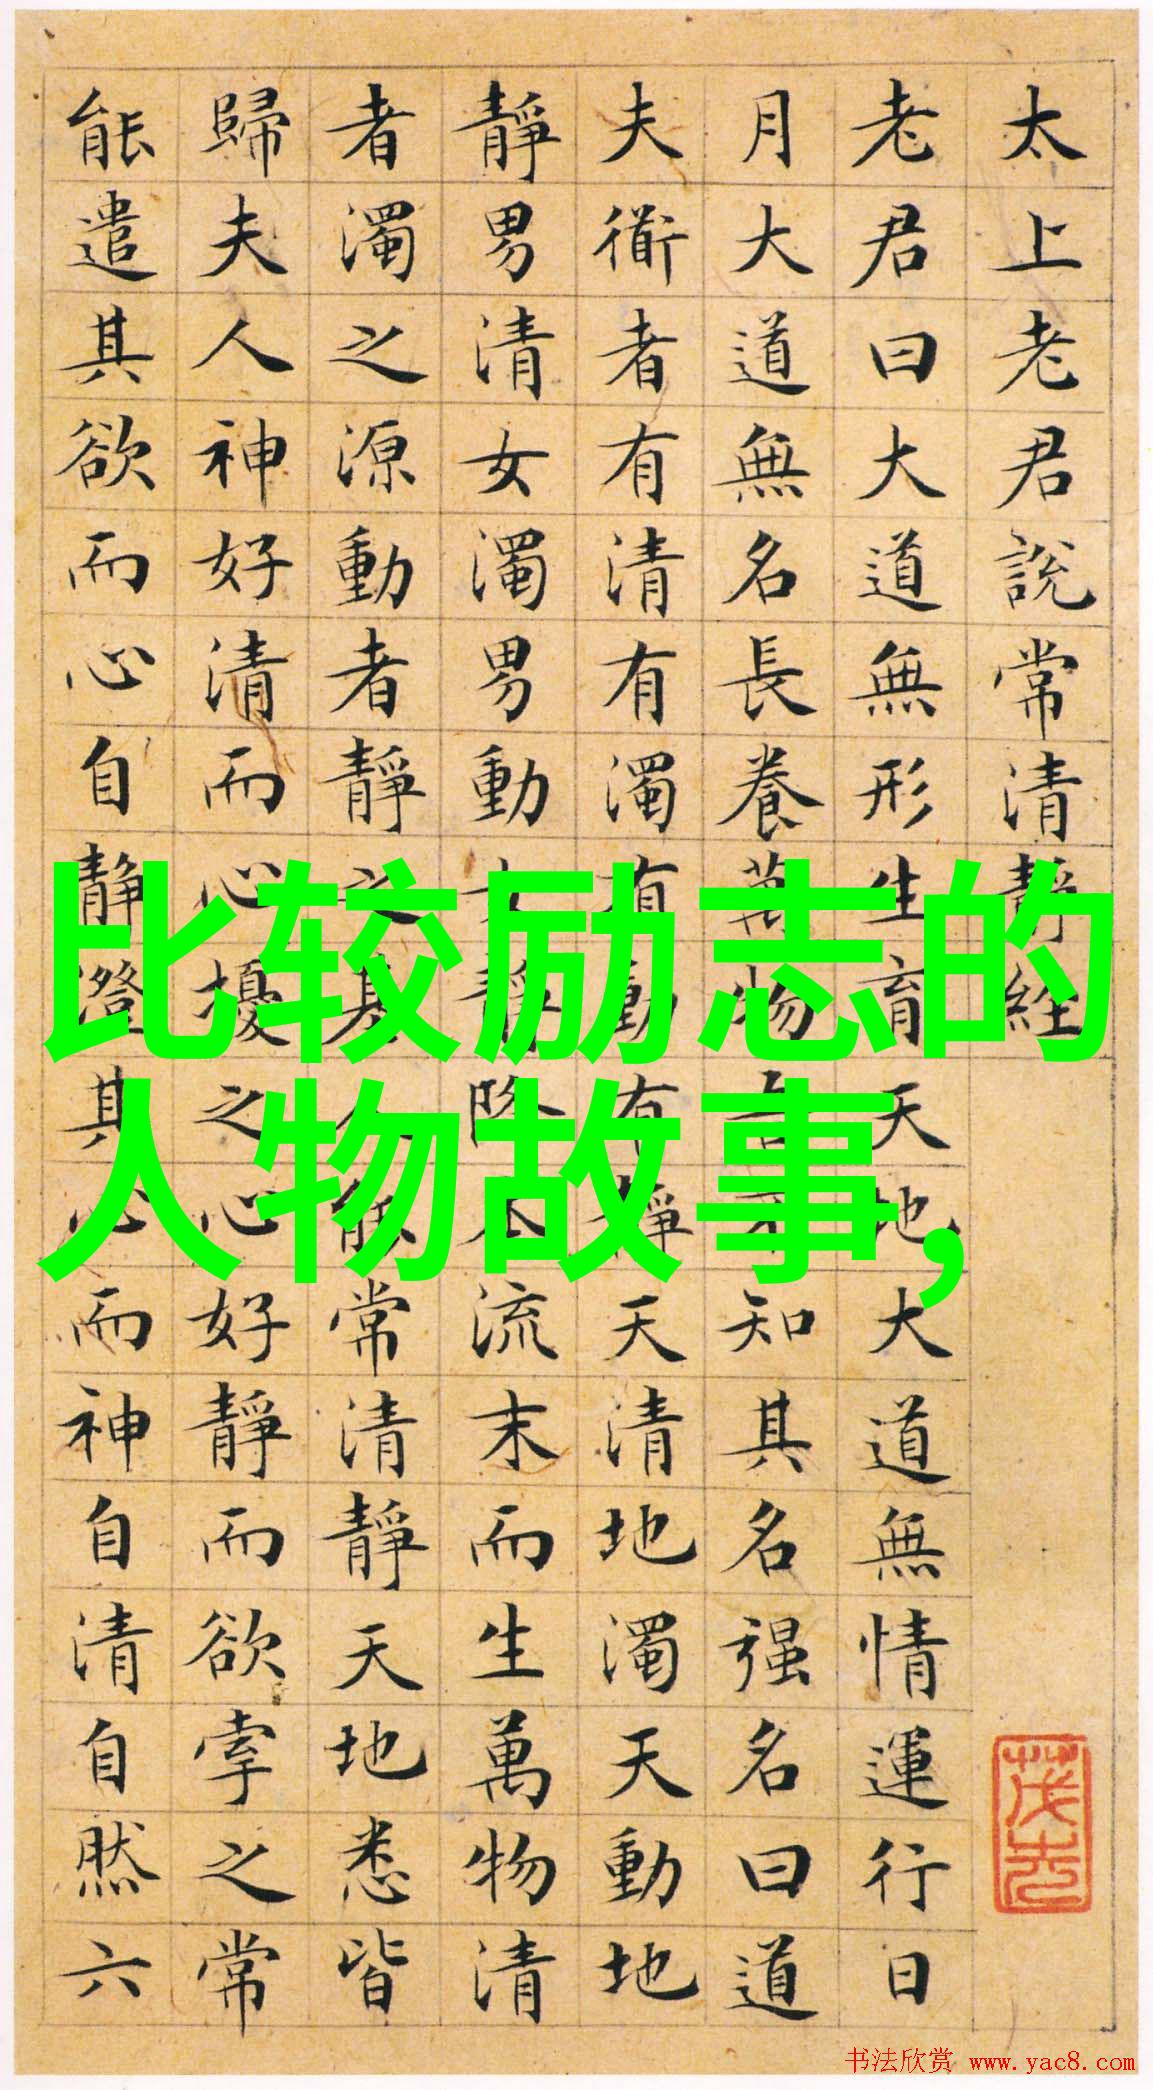 太上老君說常清靜經
老君曰大道無形生育天地大道無情運行日
月大道無名長養萬物吾不知其名强名曰道
夫衜者有清有濁有動有靜天清地濁天動地
靜男清女濁男動女靜降本流末而生萬物清
者濁之源動者靜之基人能常清靜天地悉皆
歸夫人神好清而心擾之心好靜而欲牽之常
能遣其欲而心自靜澄其心而神自清自然六
比较励志的
人物故事,
书法欣赏 www.yac8.com